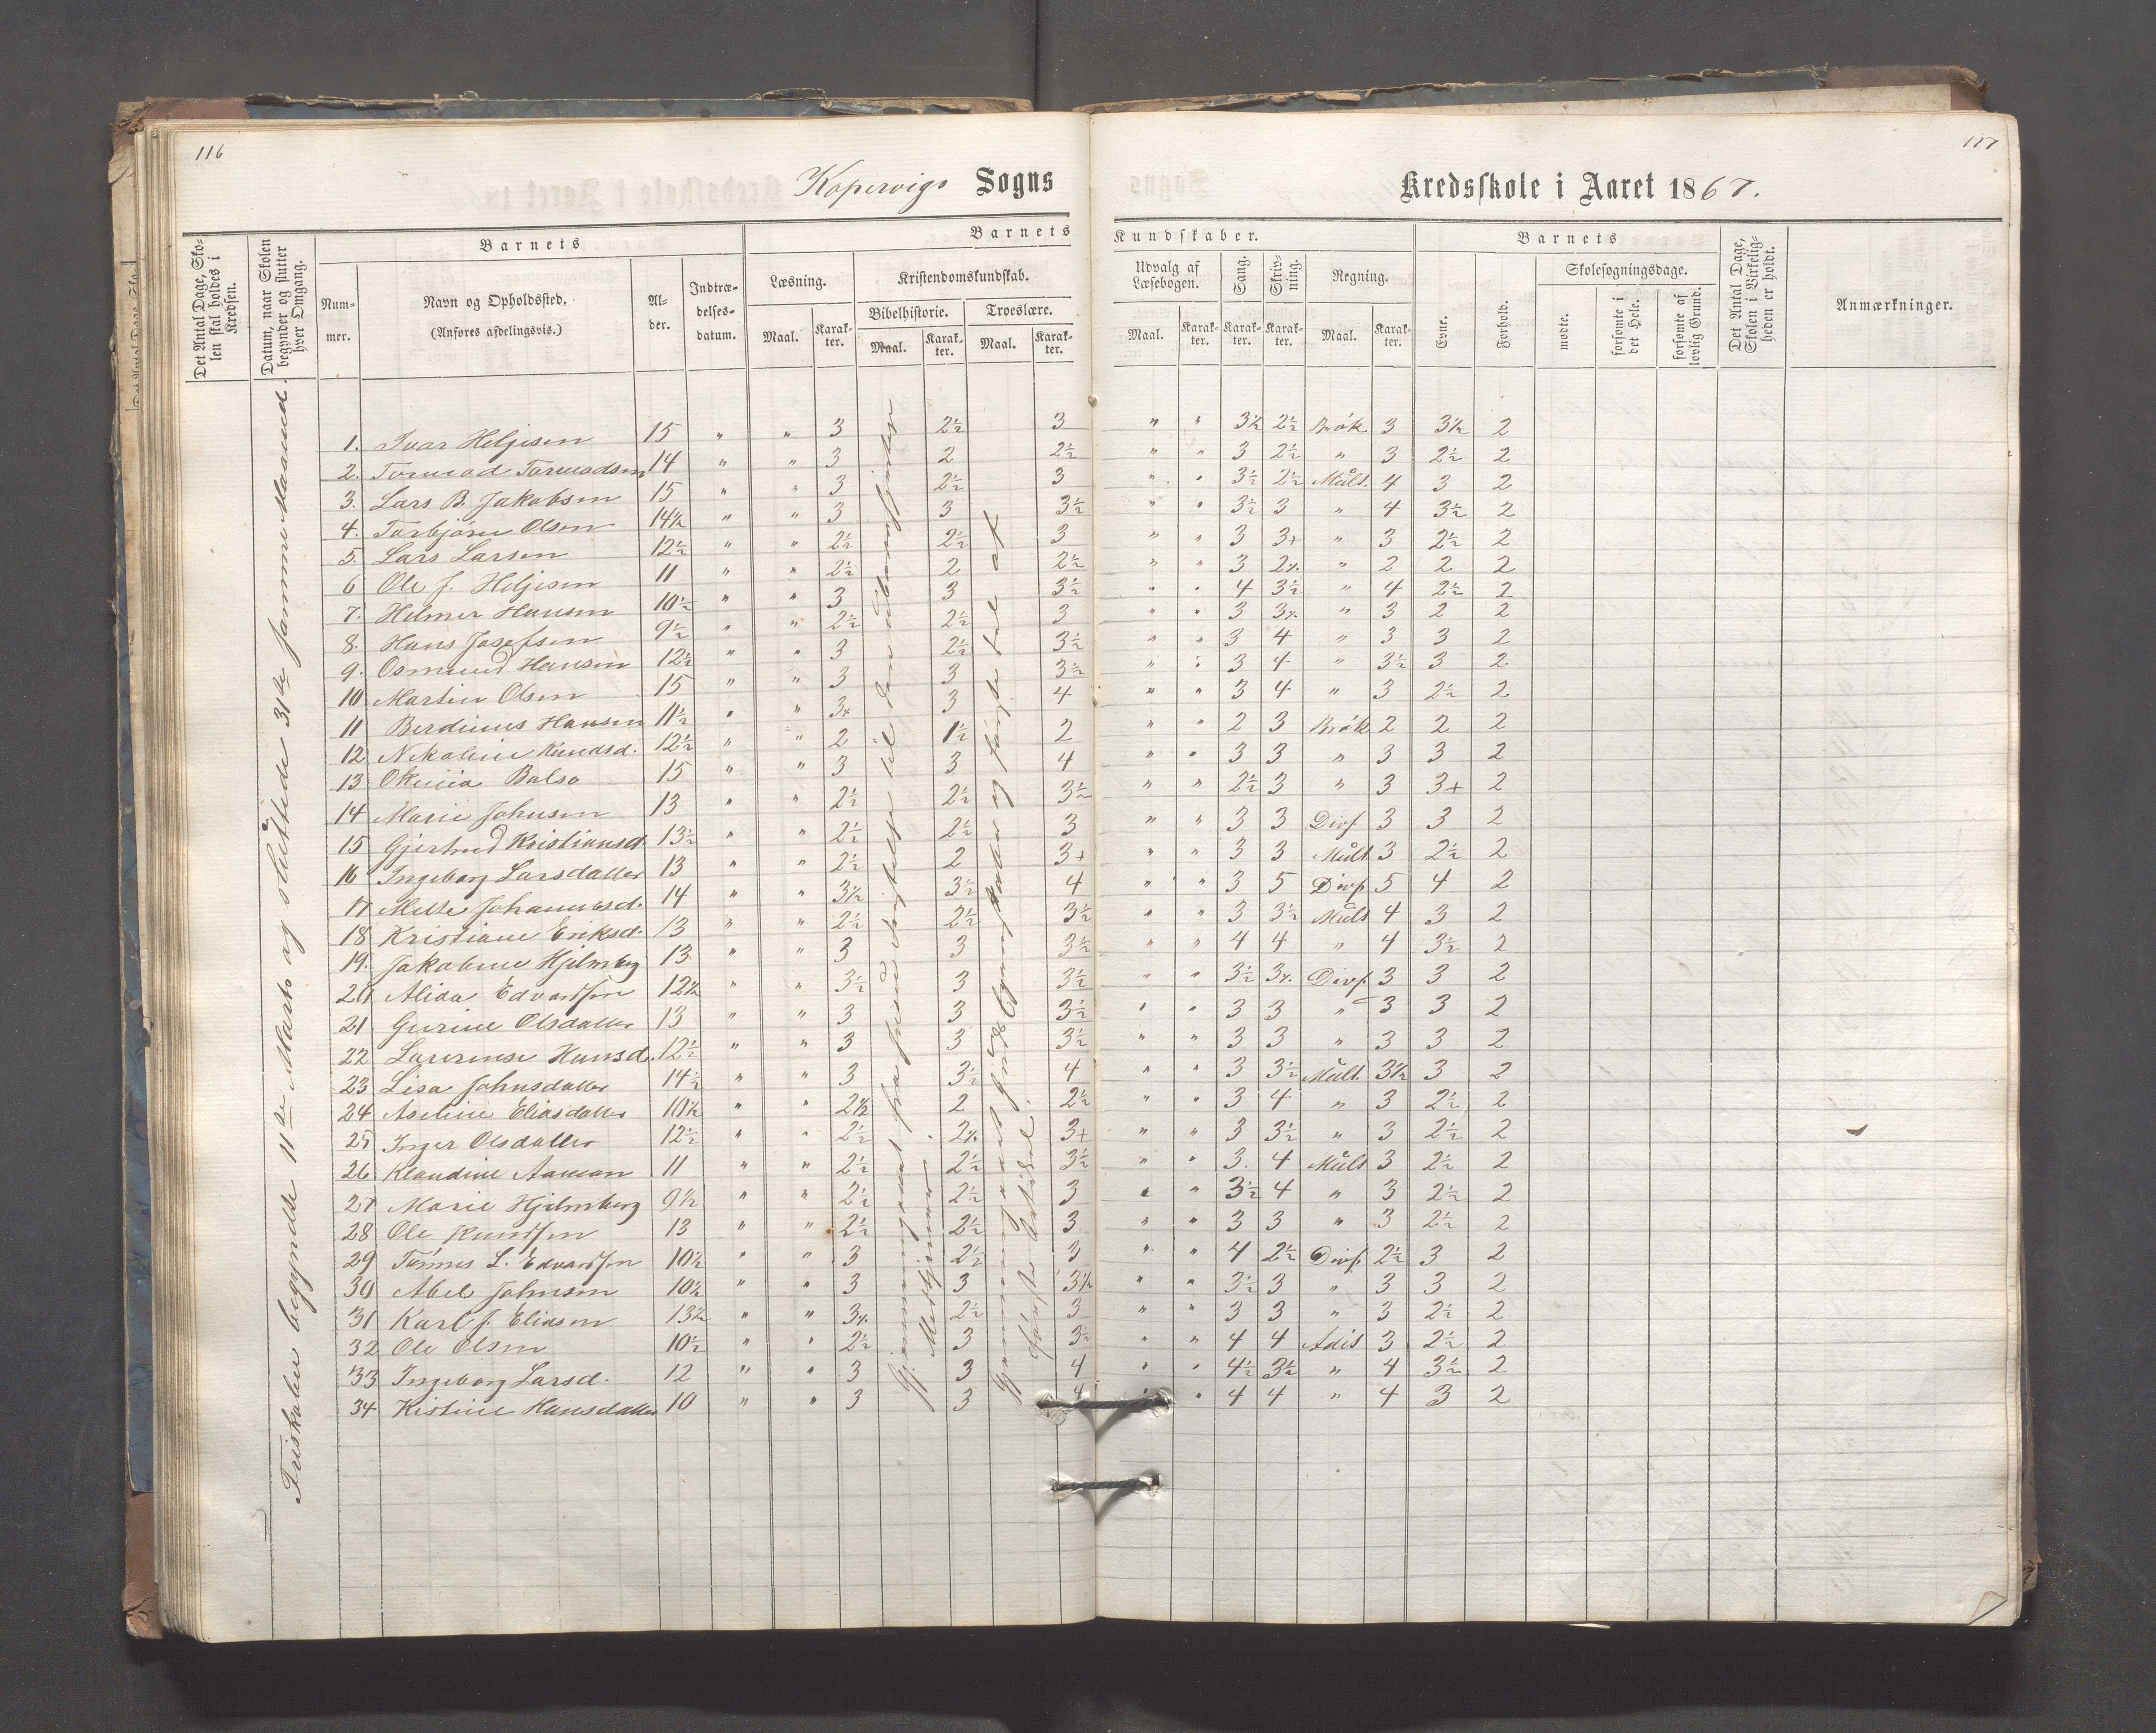 116
117
Kopervigs Sogns
Kredsskole i Aaret 1867.
Det Antal Dage, Skolen skal holdes i Kredsen.
Datum, naar Skolen begynder og slutter hver Omgang.
Barnets
Barnets
Kundskaber.
Barnets
Det Antal Dage, Skolen i Virkeligheden er holdt.
Anmærkninger.
Nummer.
Navn og Opholdssted.
(Anføres afdelingsvis.)
Alder.
Indtrædelsesdatum.
Læsning.
Kristendomskundskab.
Bibelhistorie.
Troeslære.
Udvalg af Læsebogen.
Sang.
Skrivning.
Regning.
Evne.
Forhold.
Skolesøgningsdage.
mødte.
forsømte i det Hele.
forsømte af lovlig Grund.
Maal. Karakter. Maal. Karakter. Maal. Karakter.
Maal. Karakter. Karakter. Karakter. Maal. Karakter.
Friskolen begyndte 11te Marts og sluttede 31te samme Maaned.
1. Ivar Heljesen 15 " " 3 2½ 3 " " 3½ 2½ Brök 3 3½ 2
2. Tormod Tormodsen 14 " " 3 2 2½ " " 3 2½ " 3 2½ 2
3. Lars B. Jakobsen 15 " " 3 2½ 3 " " 3½ 2½ Mult. 4 3 2
4. Torbjörn Olsen 14½ " " 3 3 3½ " " 3½ 3 " 4 3½ 2
5. Lars Larsen 12½ " " 2½ 2½ 3 " " 3 3+ " 3 2½ 2
6 Ole J. Heljesen 11 " " 2½ 2 2½ " " 3 2½ " 2 2 2
7. Helmer Hansen 10½ " " 3 3 3½ " " 4 3½ " 4 2½ 2
8. Hans Josefsen 9½ " " 2½ 2½ 3 " " 3 3½ " 3 2 2
9. Osmund Hansen 12½ " " 3 2½ 3½ " " 3 4 " 3 3 2
10 Martin Olsen 15 " " 3 3 3½ " " 3 4 " 3½ 3 2
11 Berdinus Hansen 11½ " " 3+ 3 4 " " 3 4 " 3 2½ 2
12 Nikoline Knudsd. 12½ " " 2 1½ 2 " " 2 3 Brök 2 2 2
13 Balso 15 " " 3 3 4 " " 3 3 " 3 3 2
14 Marie Johnsen 13 " " 2½ 2½ 3½ " " 2½ 3 " 3 3+ 2
15 Gjertrud Kristiansd. 13½ " " 2½ 2½ 3 " " 3 3 Divs. 3 3 2
16 Ingeborg Larsdatter 13 " " 2½ 2 3+ " " 3 3 Mult. 3 2½ 2
17 Mette Johannesd. 14 " " 3½ 3½ 4 " " 3 5 Divs. 5 4 2
18 Kristiane Eriksd. 13 " " 2½ 2½ 3½ " " 3 3½ Mult 4 3 2
19. Jakobine Hjelmberg 13 " " 3 3 3½ " " 4 4 " 4 3½ 2
20 Alida Edvardsen 12½ " " 3½ 3 3½ " " 3½ 3½ Divs. 3 3 2
21 Gurine Olsdatter 13 " " 3 3 3½ " " 3 3 " 3 3 2
22 Laurense Hansd. 12½ " " 3 3 3½ " " 3 3 " 3 3 2
23 Lisa Johnsdatter 14½ " " 3 3½ 4 " " 3 3½ Mult. 3½ 3 2
24 Aseline Eliasdatter 10½ " " 2½ 2 2½ " " 3 4 " 3 2½ 2
25 Inger Olsdatter 12½ " " 2½ 2½ 3+ " " 3 3½ " 3 2½ 2
26 Klaudine Aamon 11 " " 2½ 2½ 3½ " " 3. 4 Mult 3 2½ 2
27 Marie Hjelmberg 9½ " " 2½ 2½ 3 " " 3½ 4 " 3 2½ 2
28 Ole Knudsen 13 " " 2½ 2½ 3 " " 3 3 " 3 2½ 2
29 Tönnes L. Edvardsen 10½ " " 3 2½ 3 " " 4 2½ Divs 2½ 3 2
30 Abel Johnsen 10½ " " 3 3 3½ " " 3½ 3 " 3 3 2
31 Karl J. Eliasen 13½ " " 3½ 2½ 3 " " 3 3 " 3 2½ 2
32 Ole Olsen 10½ " " 2½ 3 3½ " " 4 4 Adis 3 2½ 2
33 Ingeborg Larsd. 12 " " 3 3 4 " " 4½ 3½ " 4 3½ 2
34 Kistine Hansdatter 10 " " 3 3 4 " " 4 4 " 4 3 2